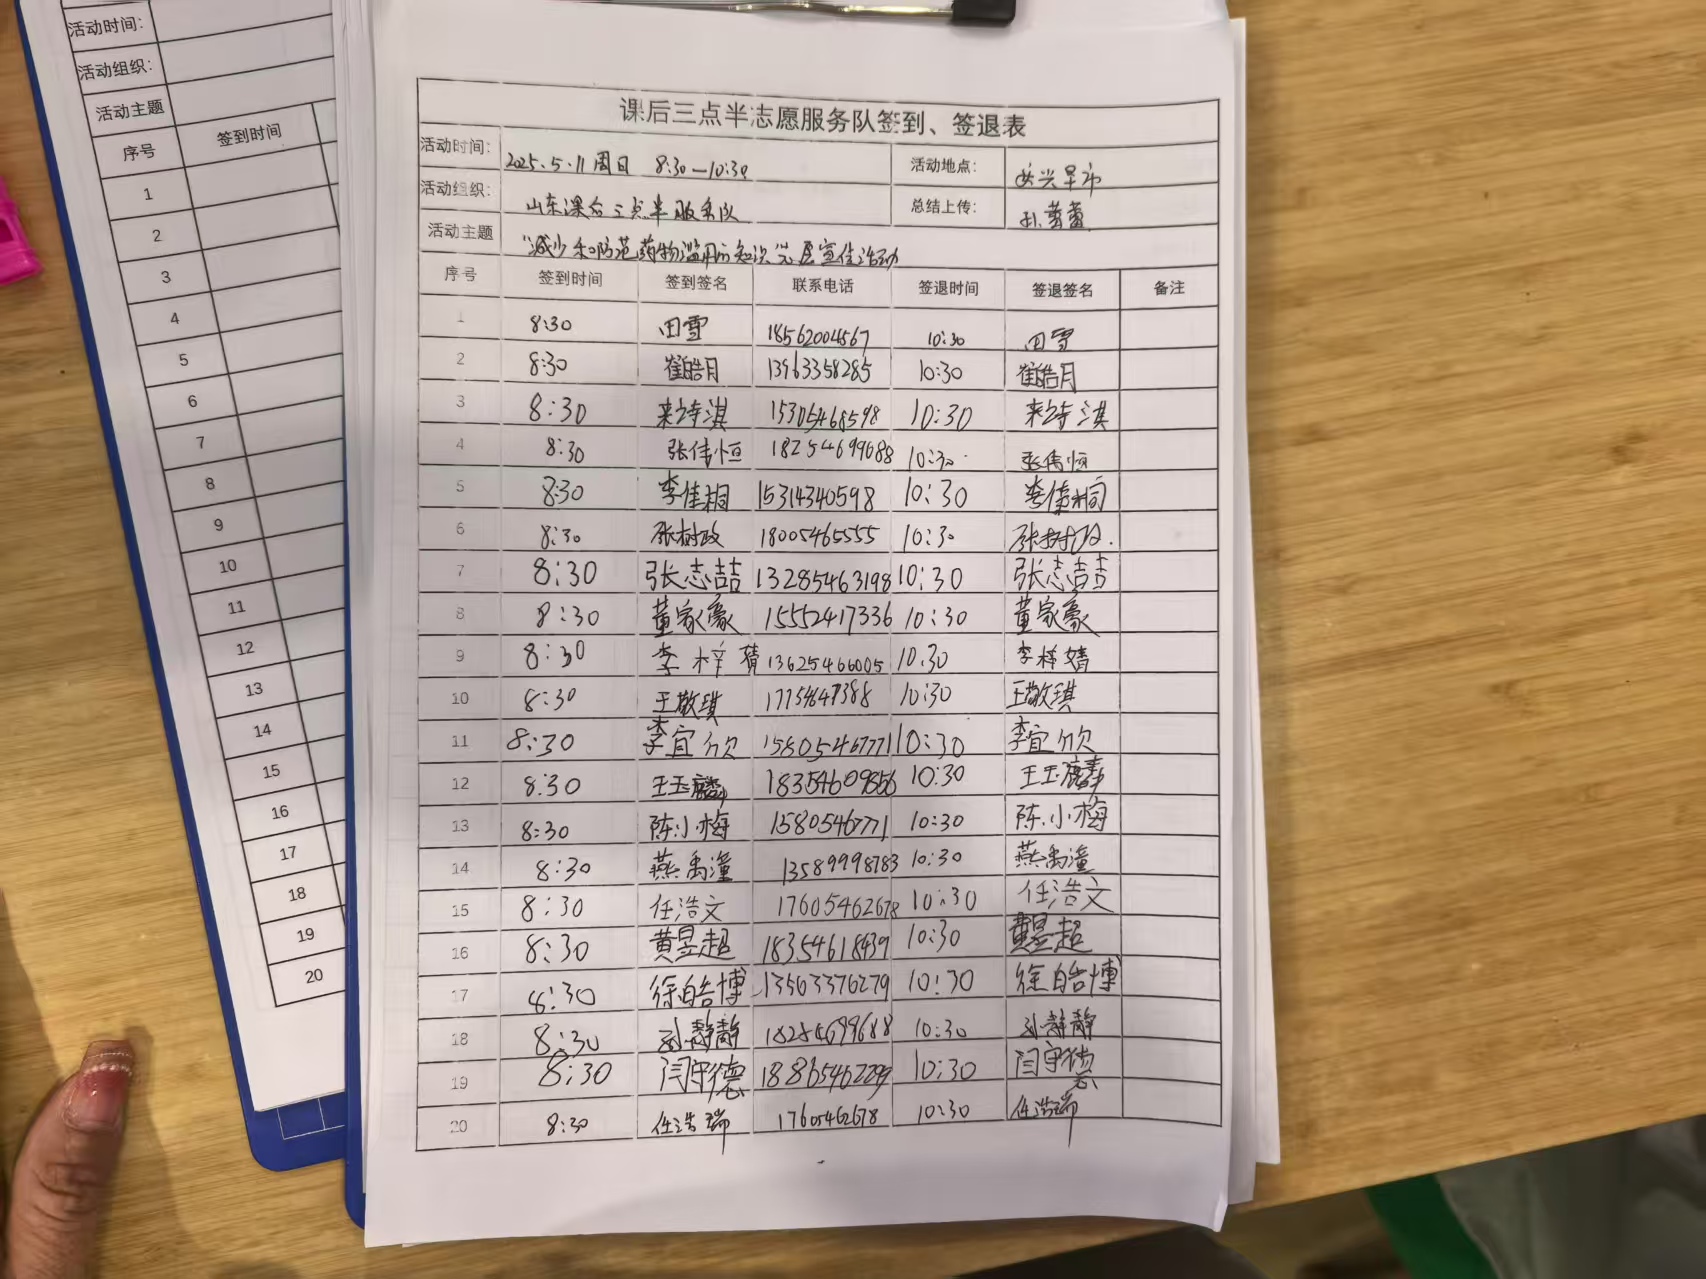 活动时间:
活动组织:
活动主题
序号 签到时间
1
2
3
4
5
6
7
8
9
10
11
12
13
14
15
16
17
18
19
20
课后三点半志愿服务队签到、签退表
活动时间: 2025.5.11周日 8:30—10:30 活动地点:
活动组织: 山东课后三点半服务队 总结上传: 孙蕾蕾
活动主题 "减少和防范药物滥用"知识 宣传活动
序号 签到时间 签到签名 联系电话 签退时间 签退签名 备注
1 8:30 田雪 18562004567 10:30 田雪
2 8:30 崔皓月 13963358285 10:30 崔皓月
3 8:30 来诗淇 15305468598 10:30 来诗淇
4 8:30 张伟恒 18254699688 10:30 张伟恒
5 8:30 李佳桐 15314340598 10:30 李佳桐
6 8:30 张树政 18005465555 10:30 张树政
7 8:30 张志喆 13285463198 10:30 张志喆
8 8:30 董家豪 15552417336 10:30 董家豪
9 8:30 李梓婧 13625466005 10:30 李梓婧
10 8:30 王敬琪 10:30 王敬琪
11 8:30 李宜欣 15805467771 10:30 李宜欣
12 8:30 王玉麟 18354609856 10:30 王玉麟
13 8:30 陈小梅 1580546771 10:30 陈小梅
14 8:30 燕禹潼 13589998783 10:30 燕禹潼
15 8:30 任浩文 17605462678 10:30 任浩文
16 8:30 黄昱超 18354618439 10:30 黄昱超
17 8:30 徐皓博 13563376279 10:30 徐皓博
18 8:30 孙静静 18254699688 10:30 孙静静
19 8:30 闫守德 18865462299 10:30 闫守德
20 8:30 任浩瑞 17605462678 10:30 任浩瑞